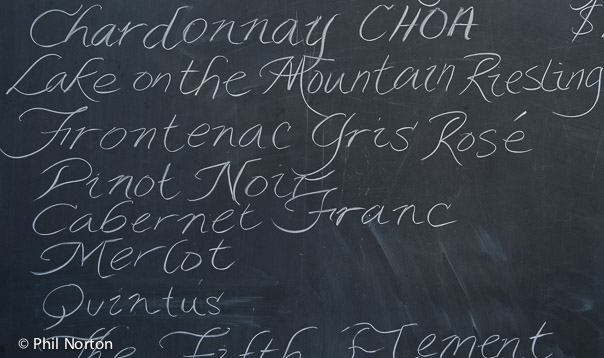 Chardonnay CHŎA $
Lake on the Mountain Riesling
Frontenac Gris Rosé
Pinot Noir
Cabernet Franc
Merlot
Quintus
The Fifth Element
© Phil Norton